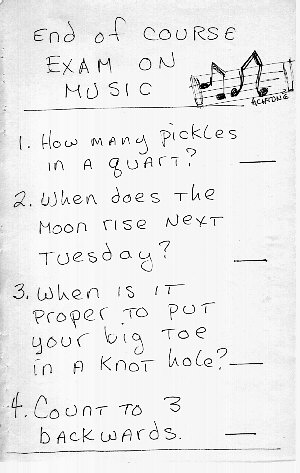 End of COURSE
EXAM ON
MUSIC
1. How many pickles
in A quart?
2. When does The
Moon rise Next
Tuesday?
3. When is IT
Proper To PUT
your big Toe
in A KnoT hole?
4. Count To 3
backwards.